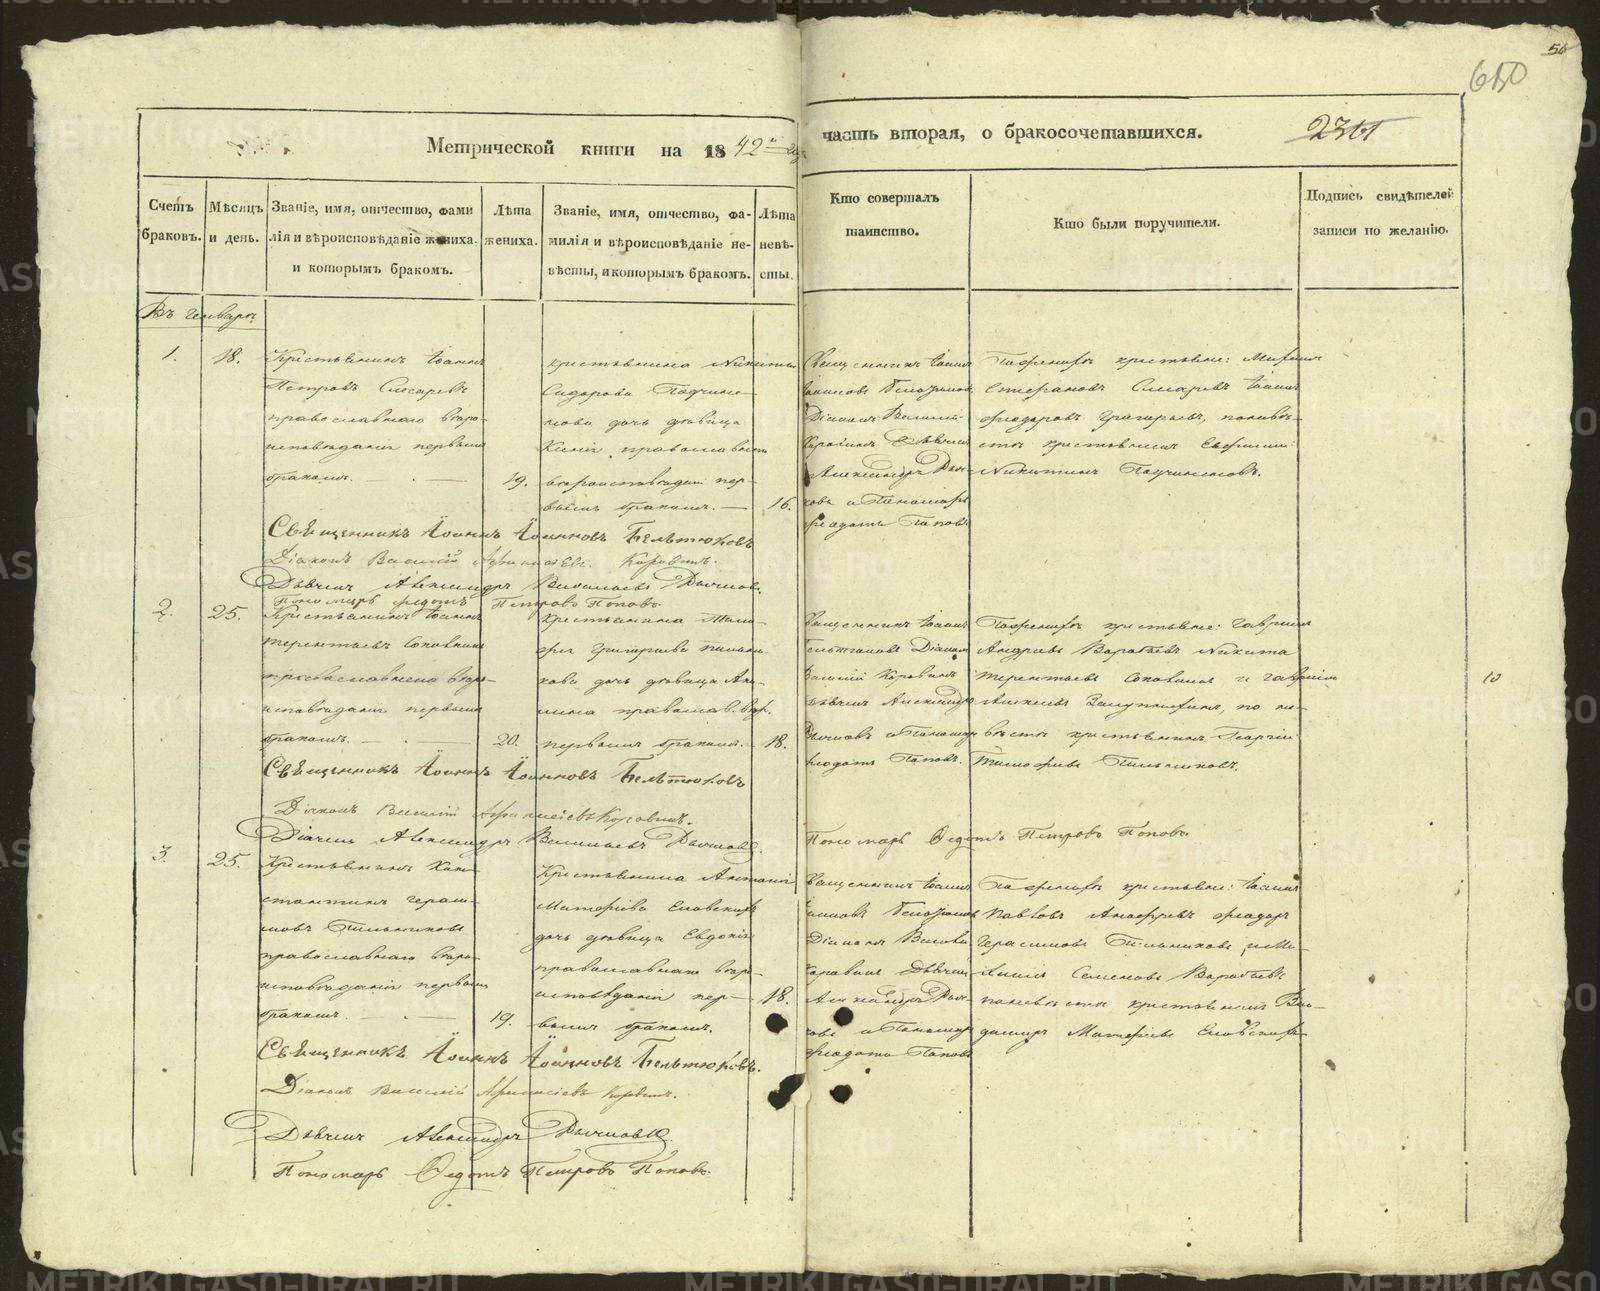 56
650
Метрической книги на 1842 часть вторая, о бракосочетавшихся.
Счетъ браковъ.
Мѣсяцъ и день.
Званіе, имя, отчество, фами
лія и вѣроисповѣданіе жениха.
и которымъ бракомъ.
Лѣта
жениха.
Званіе, имя, отчество, фа-
милія и вѣроисповѣданіе не-
вѣсты, и которымъ бракомъ.
Лѣта
невѣ-
сты.
Кто совершалъ
таинство.
Кто были поручители.
Подпись свидѣтелей
записи по желанію.
Въ Генварѣ
1.
18.
Крестьянинъ Іоаннъ
Петровъ Слесаревъ
православнаго вѣро-
исповѣданія первымъ
бракомъ.
19.
крестьянина Никиты
Сидорова
дочь дѣвица
православнаго
вѣроисповѣданія пер-
вымъ бракомъ.
16.
Священникъ Іоаннъ
Іоанновъ Бельтюковъ
Діаконъ Василій
Коровинъ Дьячекъ
Александръ Рыч-
ковъ и Пономарь
Федотъ Поповъ
По женихѣ крестьяне: Михаилъ
Стефановъ Слесаревъ Іоаннъ
Феодоровъ Григорьевъ, по невѣ-
стѣ крестьянинъ
Никитинъ
Священникъ Іоаннъ Іоанновъ Бельтюковъ
Діаконъ Василій Афанасьевъ Коровинъ.
Дьячекъ Александръ Васильевъ Рычковъ.
Пономарь Федотъ Петровъ Поповъ.
2.
25.
Крестьянинъ Іоаннъ
Терентьевъ
православнаго вѣро-
исповѣданія первымъ
бракомъ.
20.
крестьянина Тимо-
фея Григорьева Пильни-
кова дочь дѣвица
православ. вѣр.
первымъ бракомъ.
18.
Священникъ Іоаннъ
Бельтюковъ Діаконъ
Василій Коровинъ
Дьячекъ Александръ
Рычковъ и Пономарь
Федотъ Поповъ.
По женихѣ крестьяне: Гавріилъ
Андреевъ Воробьевъ Никита
Терентьевъ и Гавріилъ
по не-
вѣстѣ крестьянинъ Георгій
Тимофеевъ Пильниковъ.
10
Священникъ Іоаннъ Іоанновъ Бельтюковъ
Діаконъ Василій Афанасіевъ Коровинъ.
Діачекъ Александръ Васильевъ Рычковъ.
Пономарь Ѳедотъ Петровъ Поповъ
3.
25.
Крестьянинъ Кон-
стантинъ Гераси-
мовъ Пильниковъ
православнаго вѣро-
исповѣданія первымъ
бракомъ.
19.
Крестьянина
Матфеева
дочь дѣвица Евдокія
православнаго вѣро-
исповѣданія пер-
вымъ бракомъ.
18.
Священникъ Іоаннъ
Іоанновъ Бельтюковъ
Діаконъ Василій
Коровинъ Дьячекъ
Александръ Рыч-
ковъ и Пономарь
Федотъ Поповъ
По женихѣ крестьяне: Іоаннъ
Павловъ Феодоръ
Герасимовъ Пильниковъ
Семеновъ Воробьевъ
по невѣстѣ крестьянинъ Вла-
димиръ Матфеевъ
Священникъ Іоаннъ Іоанновъ Бельтюковъ.
Діаконъ Василій Афанасіевъ Коровинъ.
Дьячекъ Александръ Рычковъ.
Пономарь Ѳедотъ Петровъ Поповъ.
METRIKI.GASO-URAL.RU